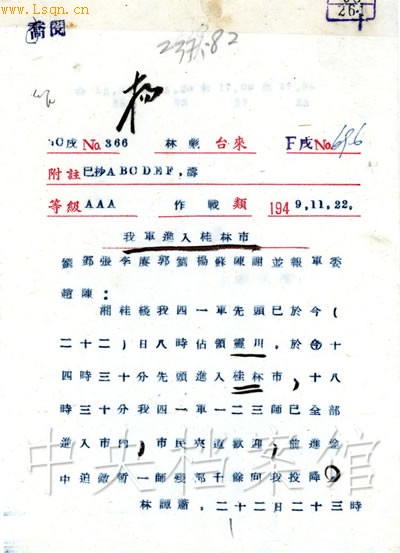 www.Lsqn.cn
閱
26
楊
戌No.366 林 台來 F戌No.696
附註已抄ABCDEF,濤
等級AAA 作戰類 1949,11,22.
我軍進入桂林市
劉鄧張李 郭劉楊蘇陳謝並報軍委
趙陳:
湘桂綫我四一軍先頭已於今(
二十二)日八時佔領靈川,於今十
四時三十分先頭進入桂林市,十八
時三十分我四一軍一二三師已全部
進入市內,市民夾道歡迎,當進
中迫敵暫一師殘部千餘向我投降。
林譚蕭,二十二日二十三時
中央档案馆